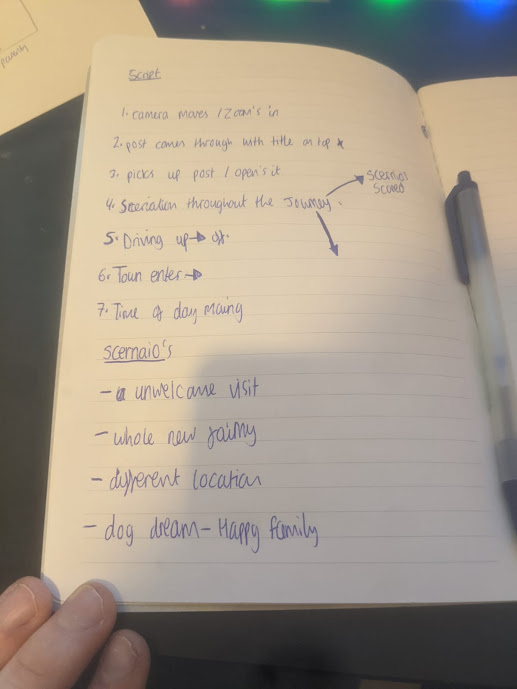 Script
1. camera moves / Zoom's in
2. post comes through with title on top *
3. picks up post / open's it
4. throughout the Journey.
scernaio
scared
5. Driving up → of.
6. Town enter →
7. Time of day
scernaio's
- unwelcome visit
- whole new
- different location
- dog dream - Happy family